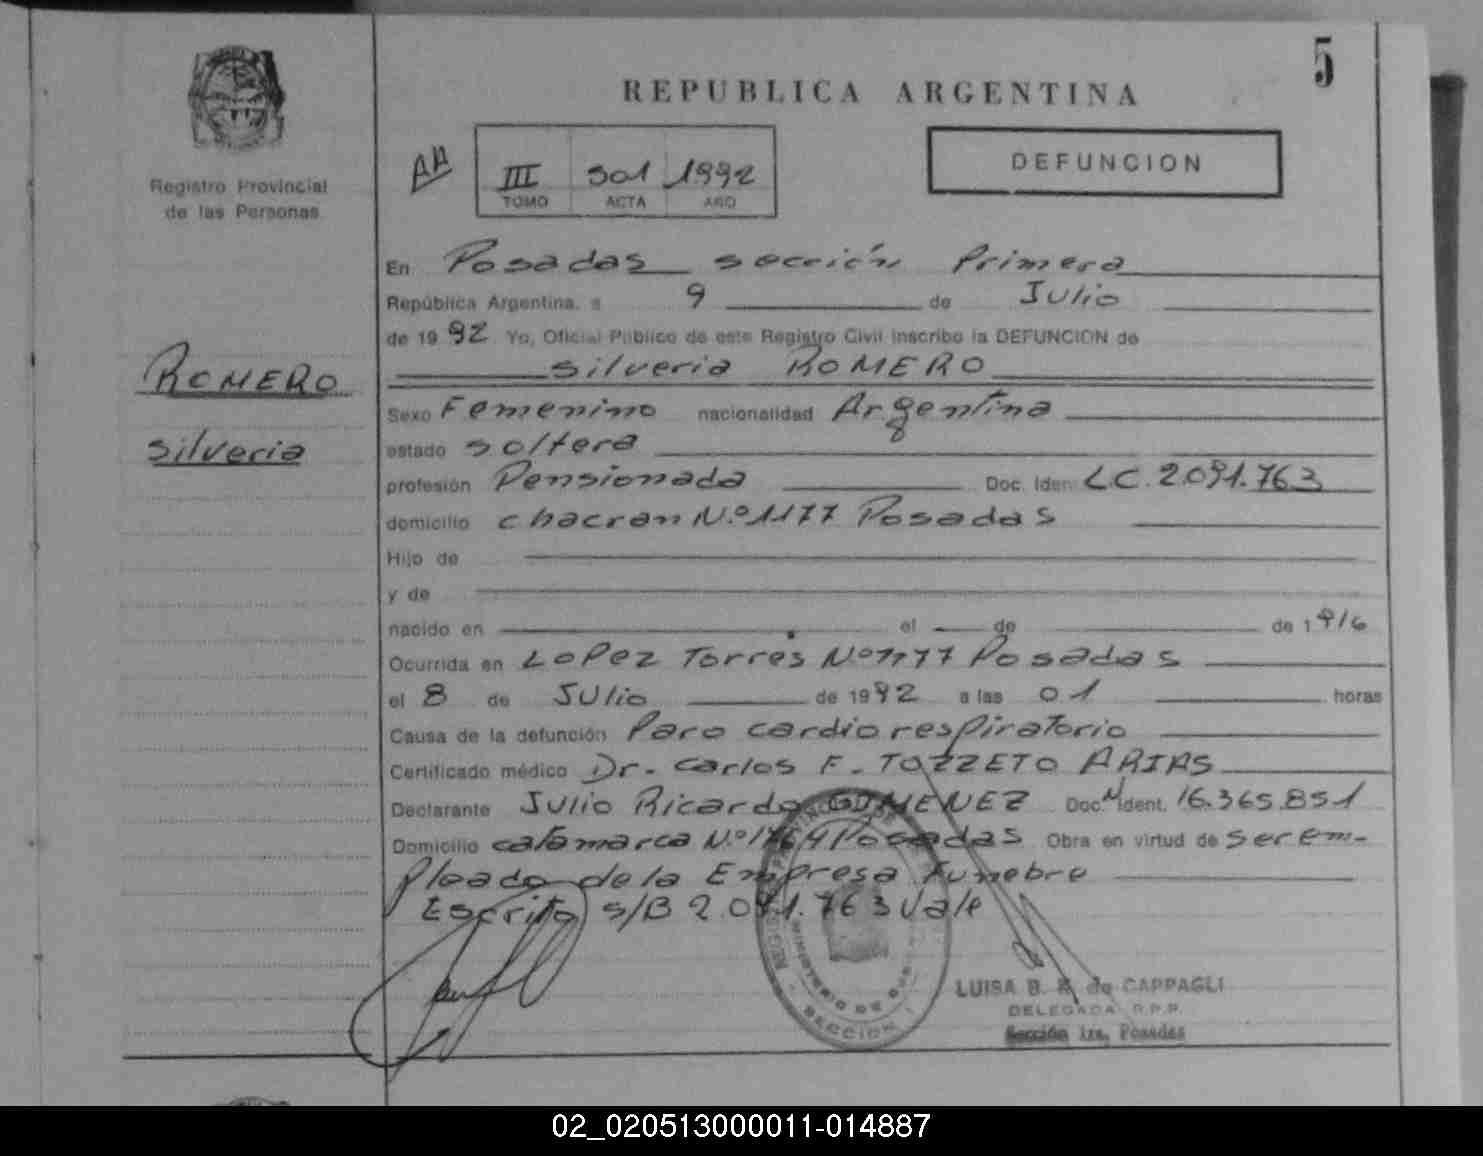 5
REPUBLICA ARGENTINA
Registro Provincial
de las Personas
AA
III 501 1992
TOMO ACTA AÑO
DEFUNCION
En Posadas sección Primera
República Argentina, a 9 de Julio
de 1992 Yo, Oficial Público de este Registro Civil inscribo la DEFUNCION de
silveria ROMERO
ROMERO
silveria
Sexo Femenino nacionalidad Argentina
estado soltera
profesión Pensionada Doc. Iden. L.C. 2.091.763
domicilio chacran N.º 1177 Posadas
Hijo de
y de
nacido en el de de 1916
Ocurrida en LoPez Torres Nº 1177 Posadas
el 8 de Julio de 1992 a las 01 horas
Causa de la defunción Paro cardiorespiratorio
Certificado médico Dr. carlos F. TOZZETO ARIAS
Declarante Julio Ricardo GIMENEZ Doc. Ident. 16.365.851
Domicilio catamarca N.º 1764 Posadas Obra en virtud de ser em-
pleado de la Empresa Funebre
Escrito s/B 2.091.763 Vale
MINISTERIO DE
SECCION
LUISA B. de CAPPAGLI
DELEGADA R.P.P.
Sección 1ra. Posadas
02_020513000011-014887